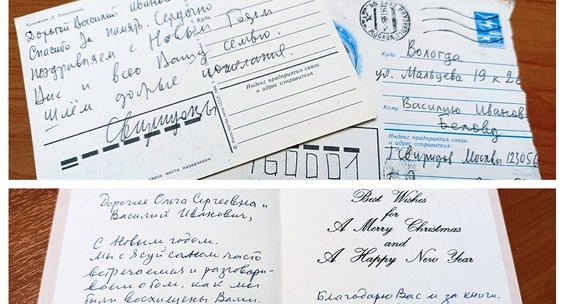 Художник Л. Похитонова
Дорогой Василий Иванович
Спасибо за память. Сердечно
поздравляем с Новым Годом
Вас и всю Вашу семью.
Шлём добрые пожелания.
Свиридовы
Куда
Кому
Индекс предприятия связи
и адрес отправителя
индекс места назначения
160001
МОСКВА
Куда
Вологда
ул. Мальцева 19 к 26
Кому
Василию Иванов
Белову
Индекс предприятия связи
и адрес отправителя
Свиридов Москва 123056
Дорогие Ольга Сергеевна и
Василий Иванович,
С Новым годом.
Мы с часто
встречаемся и разговари-
ваем о том, как мы
были восхищены Вами.
Best Wishes
for
A Merry Christmas
and
A Happy New Year
Благодарю Вас и за книги.